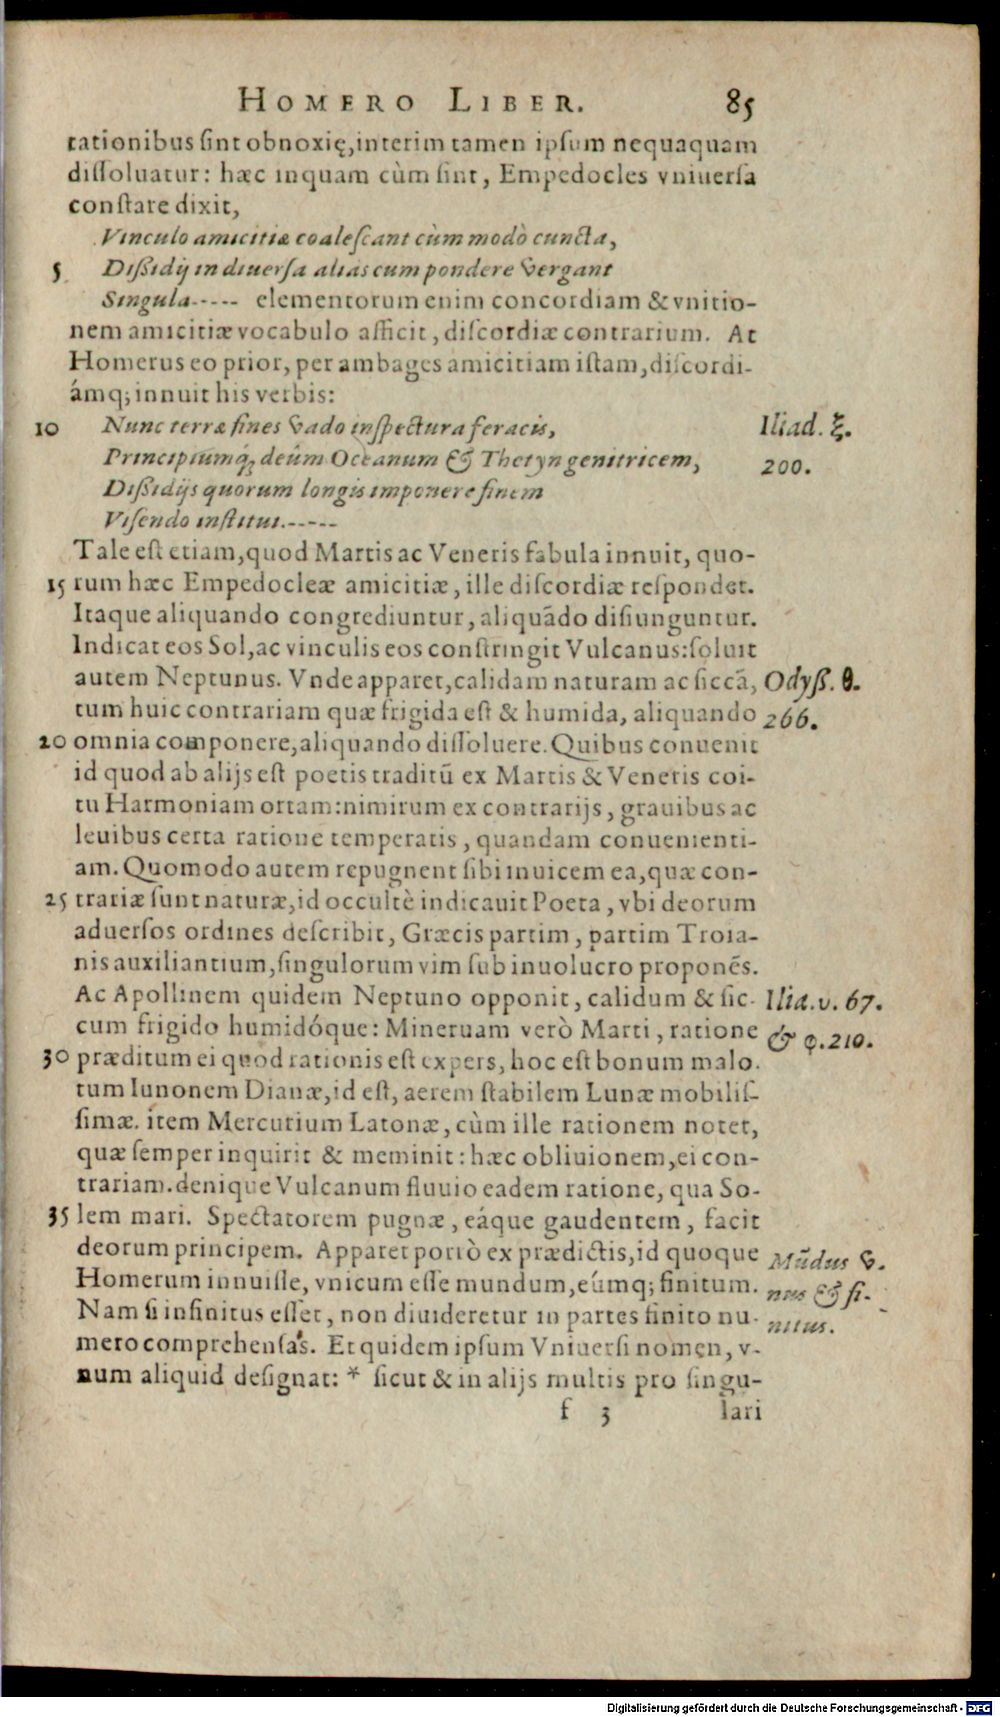 HOMERO LIBER. 85
rationibus sint obnoxię, interim tamen ipsum nequaquam
dissoluatur: hæc inquam cùm sint, Empedocles vniuersa
constare dixit,
Vinculo amicitiæ coalescant cùm modò cuncta,
5 Dißidij in diuersa aliàs cum pondere vergant
Singula----- elementorum enim concordiam & vnitio-
nem amicitiæ vocabulo afficit, discordiæ contrarium. At
Homerus eo prior, per ambages amicitiam istam, discordi-
ámq; innuit his verbis:
10 Nunc terræ fines vado inspectura feracis, Iliad. ξ.
Principiumq́; deûm Oceanum & Thetyn genitricem, 200.
Dißidijs quorum longis imponere finem
Visendo institui.-----
Tale est etiam, quod Martis ac Veneris fabula innuit, quo-
15 rum hæc Empedocleæ amicitiæ, ille discordiæ respondet.
Itaque aliquando congrediuntur, aliquãdo disiunguntur.
Indicat eos Sol, ac vinculis eos constringit Vulcanus: soluit
autem Neptunus. Vnde apparet, calidam naturam ac siccã, Odyß. θ.
tum huic contrariam quæ frigida est & humida, aliquando 266.
20 omnia componere, aliquando dissoluere. Quibus conuenit
id quod ab alijs est poetis traditũ ex Martis & Veneris coi-
tu Harmoniam ortam: nimirum ex contrarijs, grauibus ac
leuibus certa ratione temperatis, quandam conuenienti-
am. Quomodo autem repugnent sibi inuicem ea, quæ con-
25 trariæ sunt naturæ, id occultè indicauit Poeta, vbi deorum
aduersos ordines describit, Græcis partim, partim Troia-
nis auxiliantium, singulorum vim sub inuolucro proponẽs.
Ac Apollinem quidem Neptuno opponit, calidum & sic- Ilia. υ. 67.
cum frigido humidóque: Mineruam verò Marti, ratione & φ. 210.
30 præditum ei quod rationis est expers, hoc est bonum malo.
tum Iunonem Dianæ, id est, aerem stabilem Lunæ mobilis-
simæ. item Mercurium Latonæ, cùm ille rationem notet,
quæ semper inquirit & meminit: hæc obliuionem, ei con-
trariam. denique Vulcanum fluuio eadem ratione, qua So-
35 lem mari. Spectatorem pugnæ, eáque gaudentem, facit
deorum principem. Apparet porrò ex prædictis, id quoque Mũdus v.
Homerum innuisse, vnicum esse mundum, eúmq; finitum. nus & fi-
Nam si infinitus esset, non diuideretur in partes finito nu- nitus.
mero comprehensas. Et quidem ipsum Vniuersi nomen, v-
num aliquid designat: * sicut & in alijs multis pro singu-
f 3 lari
Digitalisierung gefördert durch die Deutsche Forschungsgemeinschaft - DFG